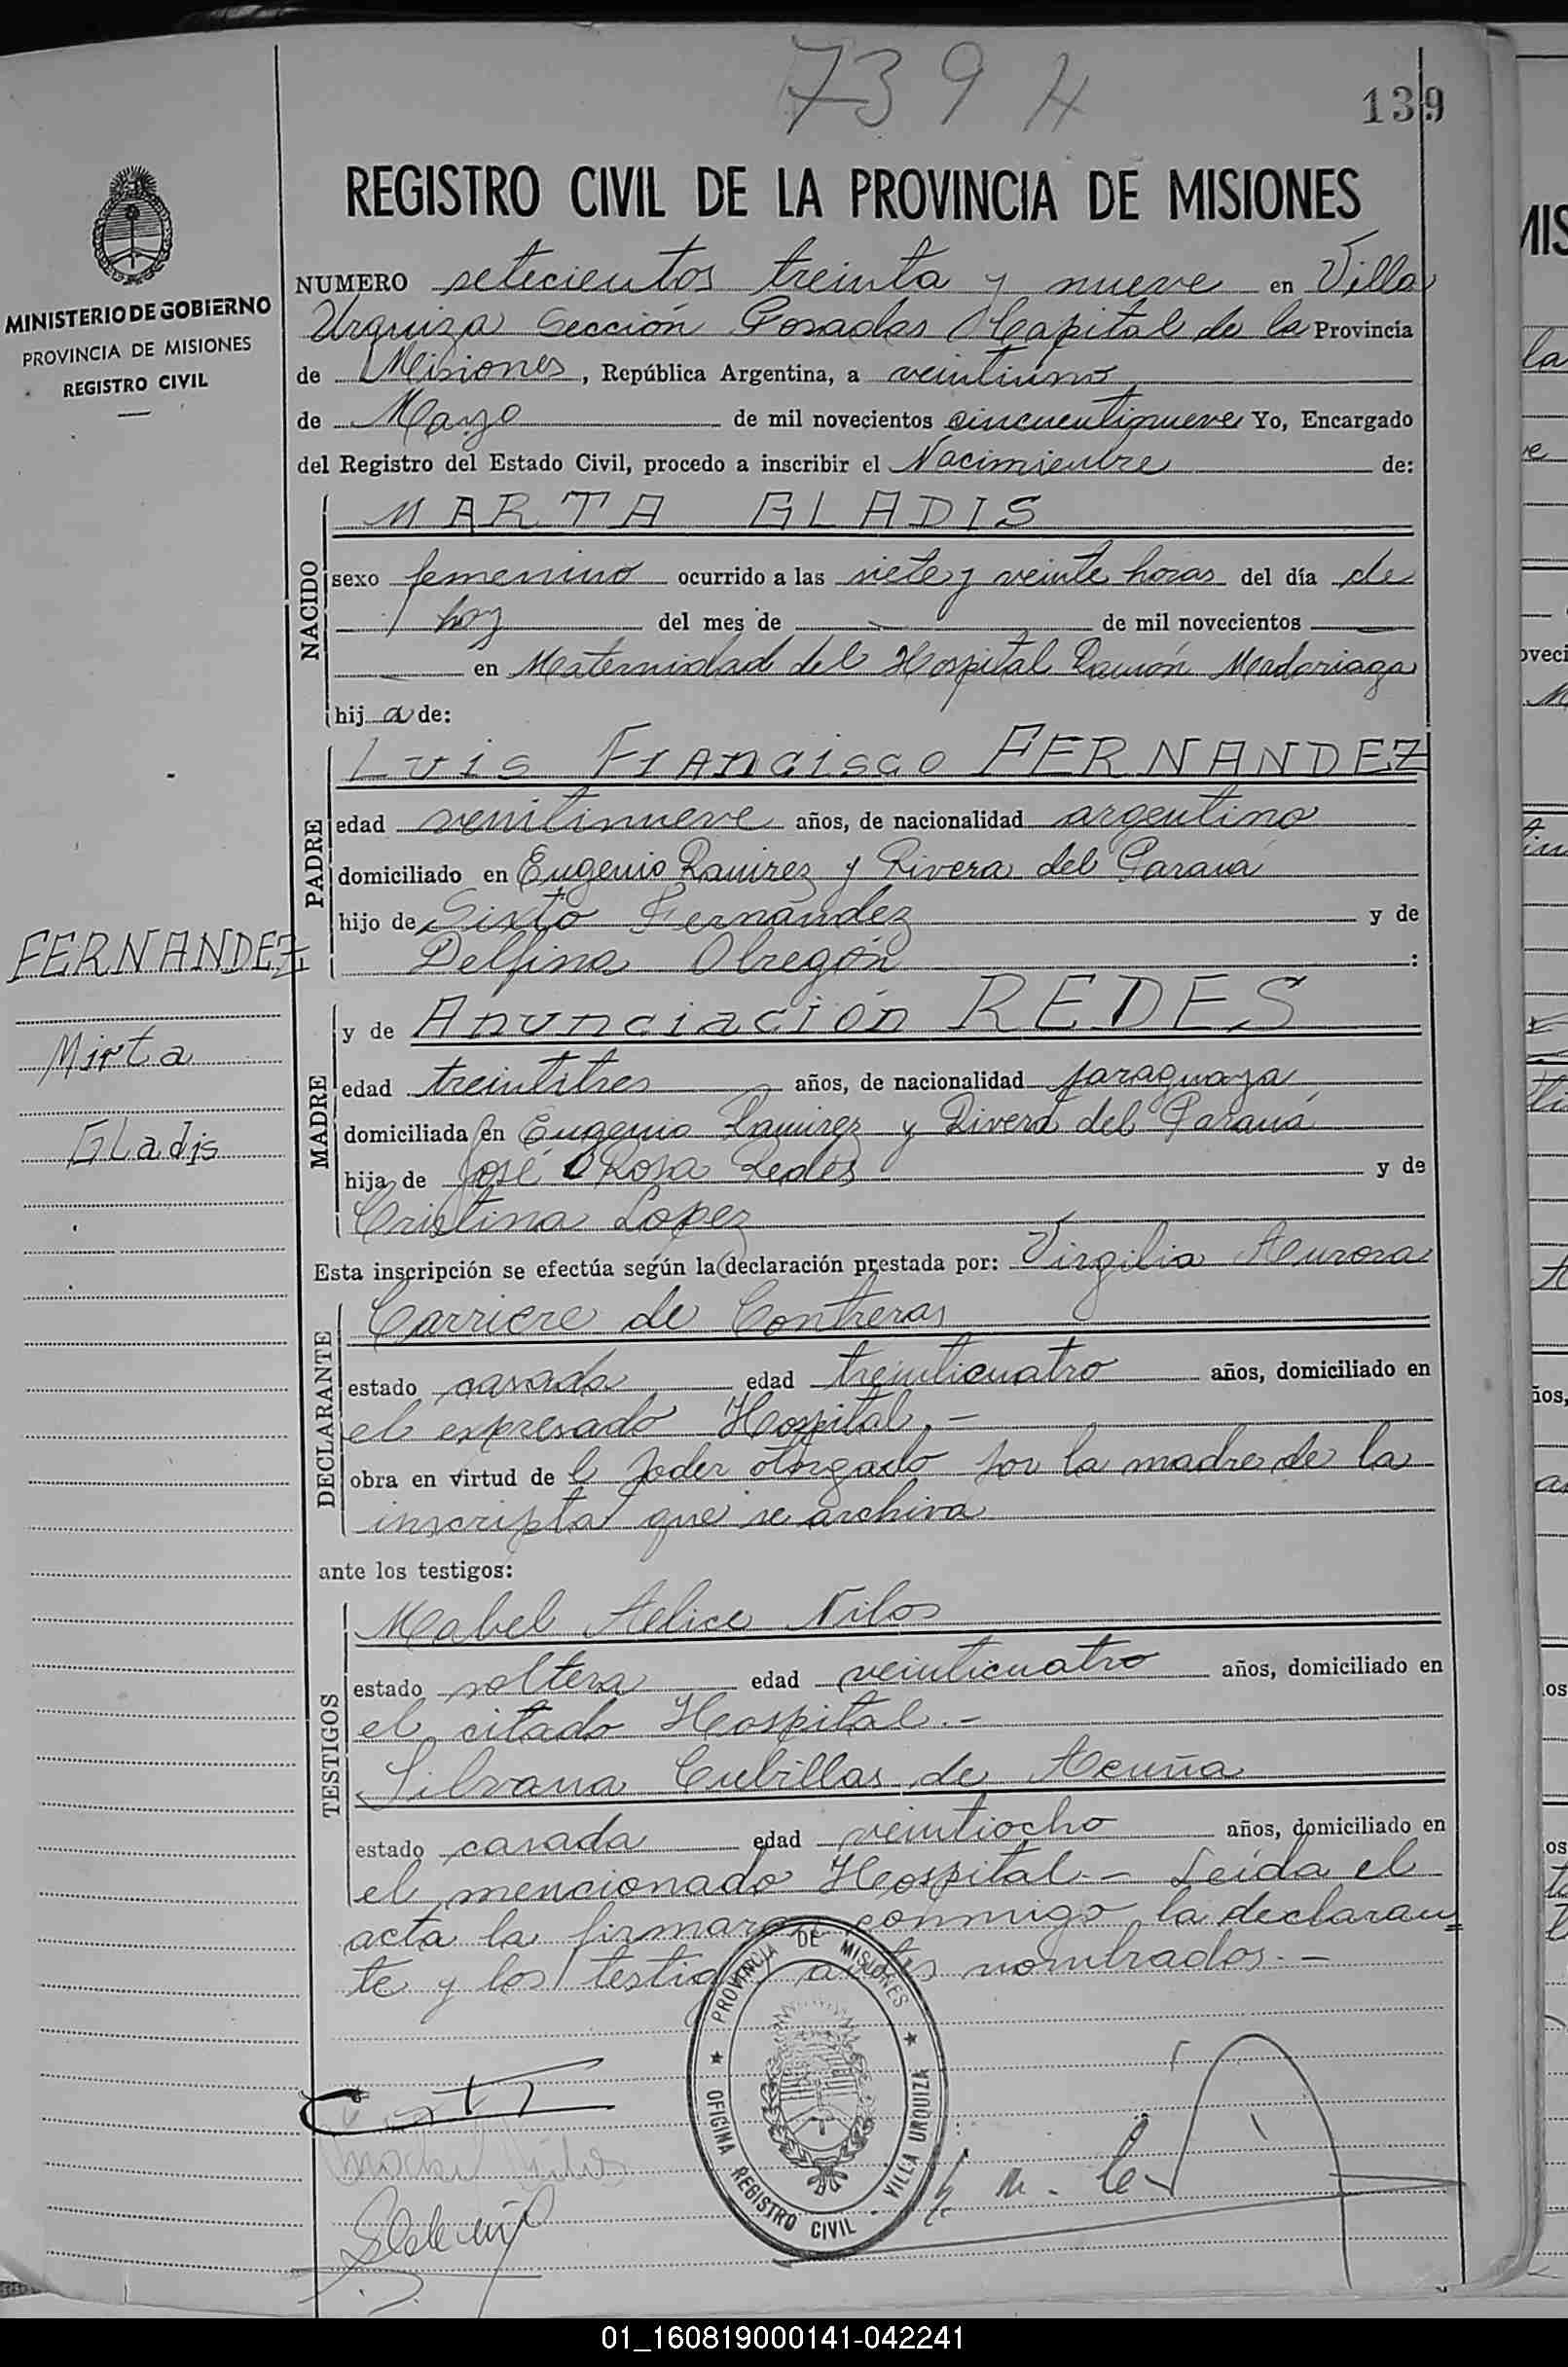 739 H
139
REGISTRO CIVIL DE LA PROVINCIA DE MISIONES
MINISTERIO DE GOBIERNO
PROVINCIA DE MISIONES
REGISTRO CIVIL
NUMERO setecientos treinta y nueve en Villa
Urquiza Sección Posadas Capital de la Provincia
de Misiones, República Argentina, a veintiuno
de Mayo de mil novecientos cincuentinueve Yo, Encargado
del Registro del Estado Civil, procedo a inscribir el Nacimiento de:
NACIDO
MARTA GLADIS
sexo femenino ocurrido a las siete y veinte horas del día de
hoy del mes de — de mil novecientos —
— en Maternidad del Hospital Ramón Madariaga
hij a de:
PADRE
Luis Francisco FERNANDEZ
edad veintinueve años, de nacionalidad argentino
domiciliado en Eugenio Ramirez y Rivera del Paraná
hijo de Sixto Fernández y de
Delfina Obregón :
FERNANDEZ
Mirta
Gladis
MADRE
y de Anunciación REDES
edad treintitres años, de nacionalidad paraguaya
domiciliada en Eugenio Ramirez y Rivera del Paraná
hija de José Rosa Redes y de
Cristina Lopez
Esta inscripción se efectúa según la declaración prestada por: Virgilia Aurora
DECLARANTE
Carriere de Contreras
estado casada edad treinticuatro años, domiciliado en
el expresado Hospital.—
obra en virtud de l poder otorgado por la madre de la
inscripta que se archiva
ante los testigos:
TESTIGOS
Mabel Alice Nilos
estado soltera edad veinticuatro años, domiciliado en
el citado Hospital.—
Silvana Cubillas de Acuña
estado casada edad veintiocho años, domiciliado en
el mencionado Hospital.— Leída el
acta la firmaron conmigo la declaran=
te y los testigos antes nombrados.—
PROVINCIA DE MISIONES
OFICINA REGISTRO CIVIL - VILLA URQUIZA
01_160819000141-042241